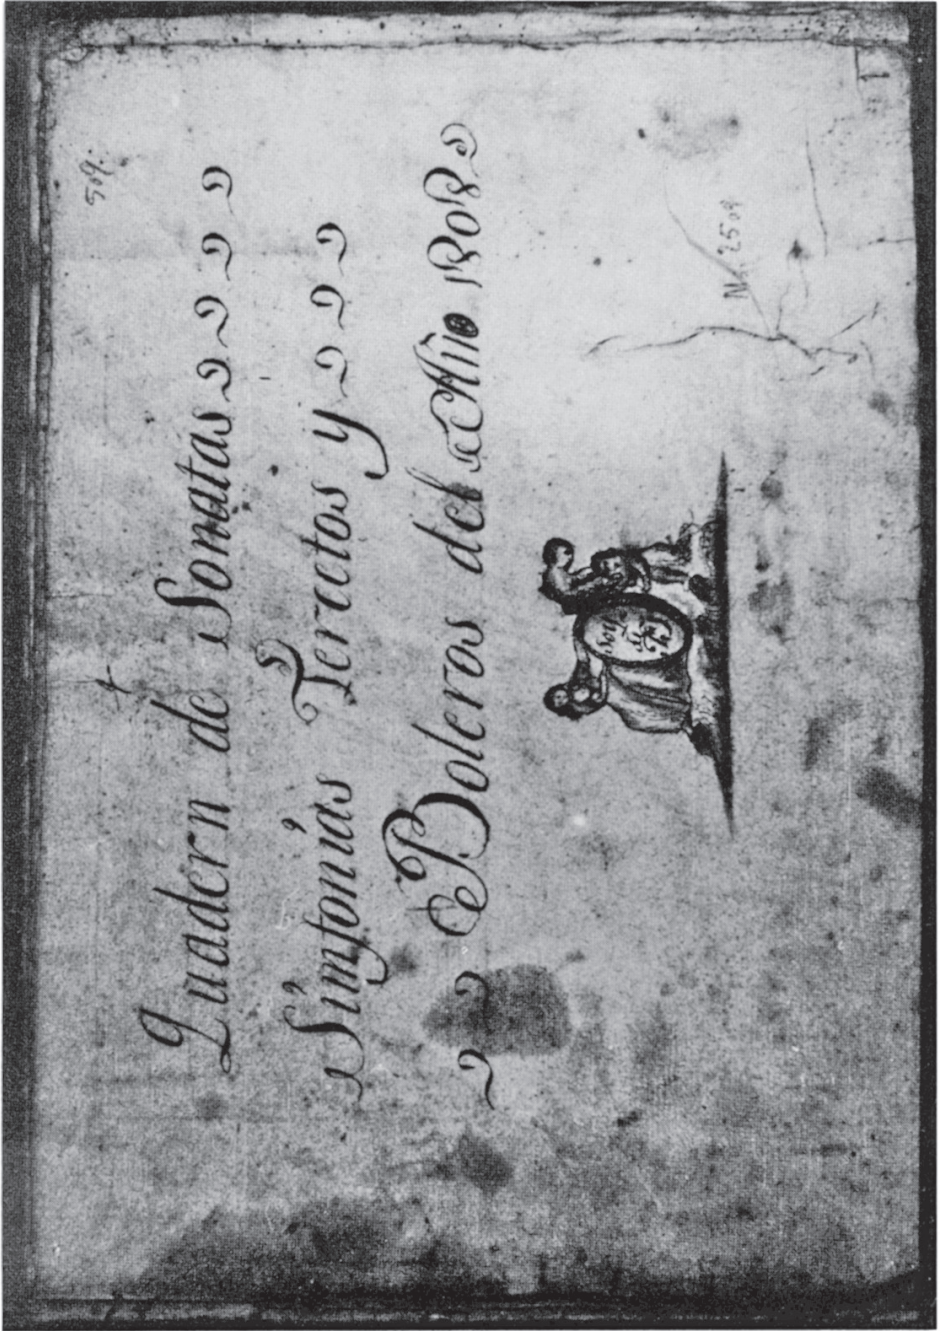 509.
Quadern de Sonatas
Simfonias Tercetos y
Boleros del Año 1808
Soy
de
Ms. 2509